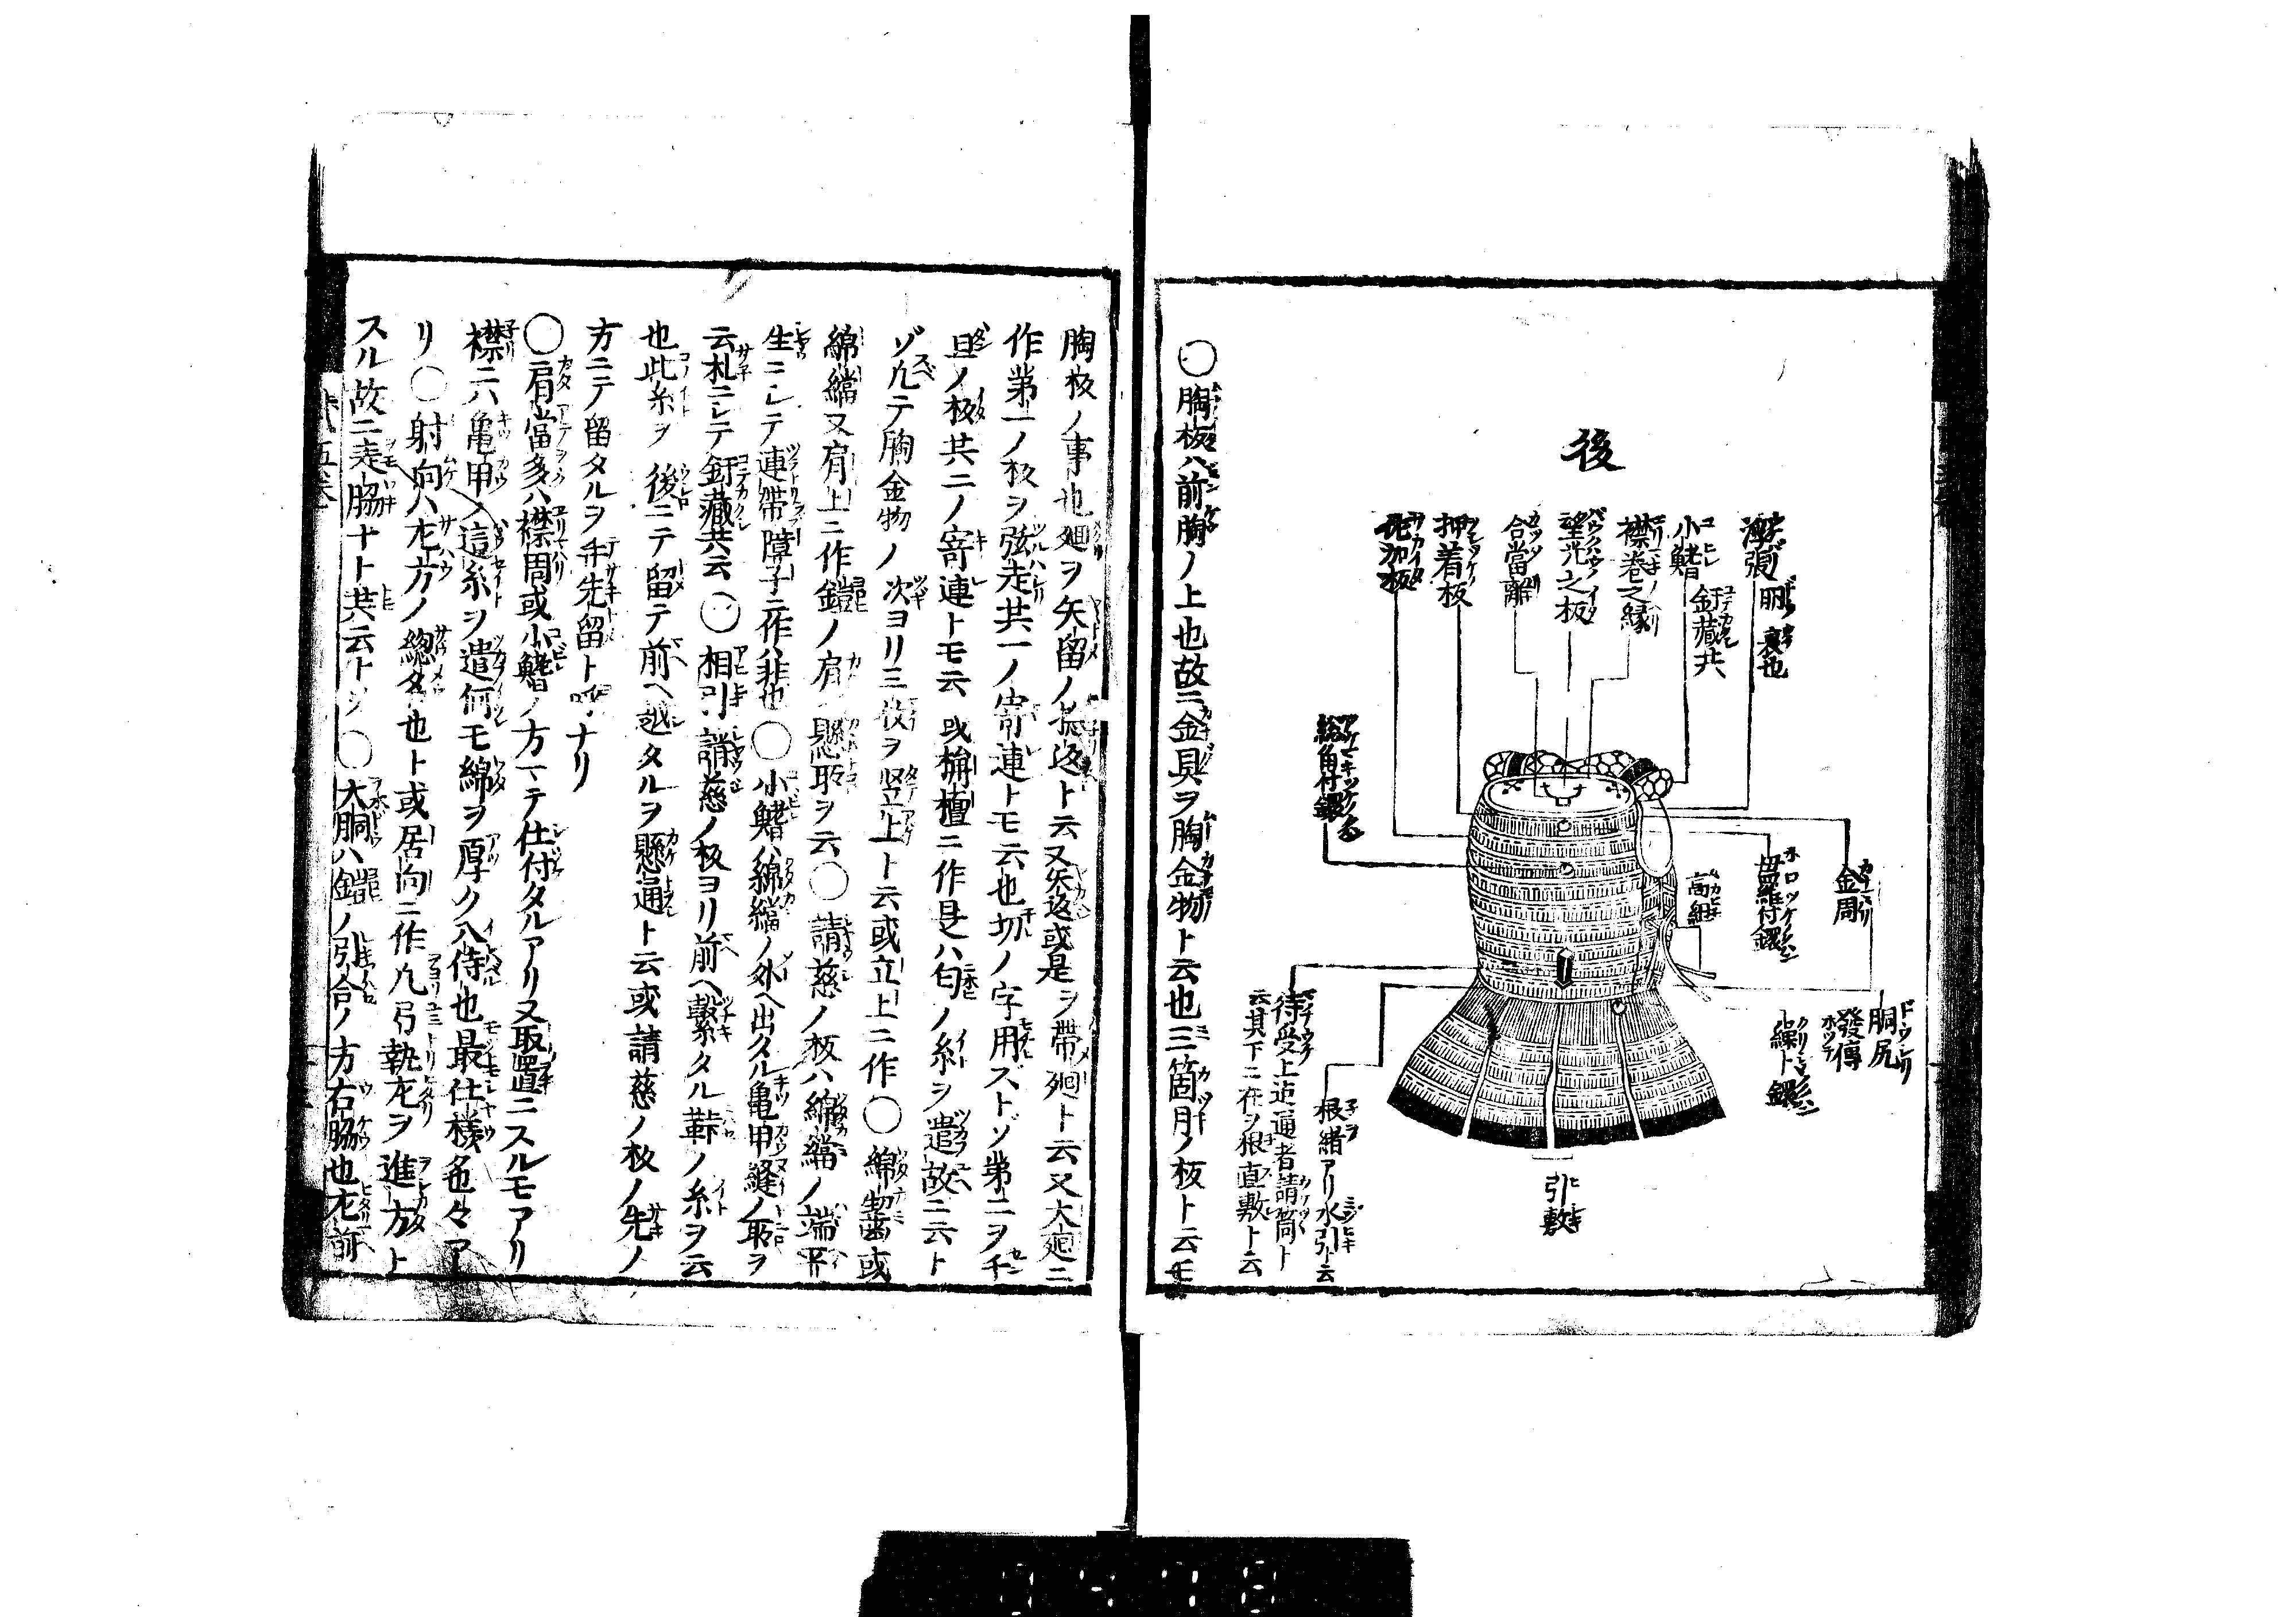 後
胴裏也
小鰭
釪藏共
襟巻之縁
望光之板
合當離
押着板
総角付鐶
金周
母羅付鐶
高紐
胴尻
發傳
繰卜鐶
待受上迠通者請筒ト
云其下ニ在ヲ根直敷ト云
根緒アリ水引ト云
引敷
◯胸板ハ前胸ノ上也故ニ金具ヲ胸金物ト云也三箇月ノ板ト云モ
胸板ノ事也廻ヲ矢留ノ板返ト云又矢返或是ヲ帶廻ト云又大廻ニ
作第一ノ板ヲ弦走共一ノ寄連トモ云也切ノ字用ストゾ第二ヲ千
旦ノ板共二ノ寄連トモ云或栴檀ニ作是ハ匂ノ糸ヲ遣故ニ云ト
ゾ凡テ胸金物ノ次ヨリ三枚ヲ竪上ト云或立上ニ作◯綿齧或
綿繿又肩上ニ作鎧ノ肩ノ懸取ヲ云◯請慈ノ板ハ綿繿ノ端平
生ニシテ連帶障子ニ作ハ非也◯小鰭ハ綿繿ノ外ヘ出タル亀甲縫ノ所ヲ
云札ニシテ釪藏共云◯相引請慈ノ板ヨリ前ヘ繫タル鞐ノ糸ヲ云
也此糸ヲ後ニテ留テ前ヘ越タルヲ懸通ト云或請慈ノ板ノ先ノ
方ニテ留タルヲ手先留ト呼ナリ
◯肩當多ハ襟周或小鰭ノ方ニテ仕付タルアリ又取置ニスルモアリ
襟ニ六亀甲ノ這糸ヲ遣何モ綿ヲ厚ク入侍也最仕様色々ア
リ◯射向ハ左方ノ總名也ト或居向ニ作凡弓執左ヲ進方ト
スル故ニ走脇ナト共云トゾ◯大胴ハ鎧ノ引合ノ方右脇也左前